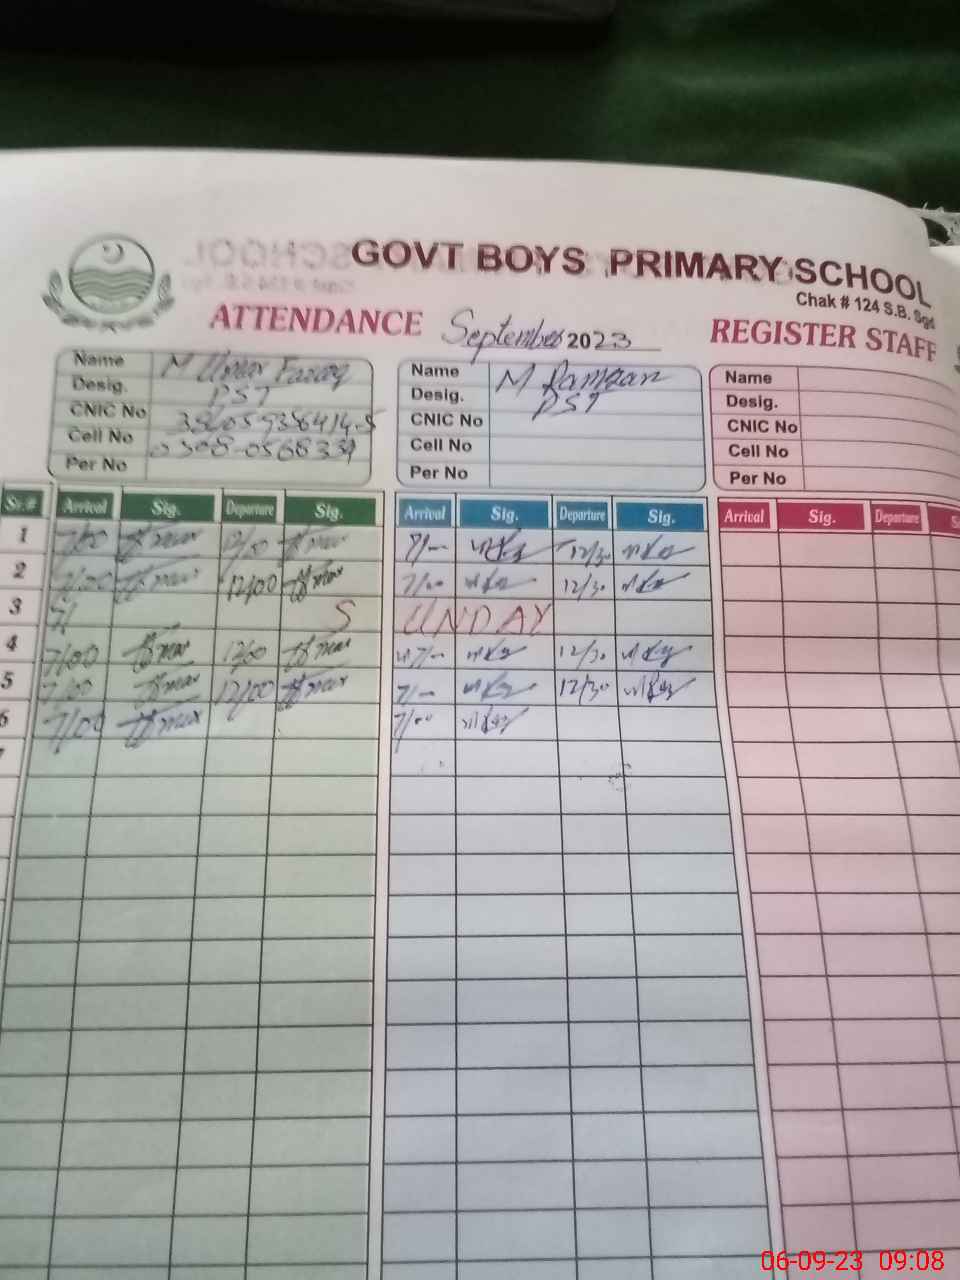 GOVT BOYS PRIMARY SCHOOL
Chak # 124 S.B. Sgd
ATTENDANCE September 2023 REGISTER STAFF
Name M Umar Farooq
Desig. PST
CNIC No
Cell No 0308-0568339
Per No
Name M Ramzan
Desig. PST
CNIC No
Cell No
Per No
Name
Desig.
CNIC No
Cell No
Per No
Sr.# Arrival Sig. Departure Sig. Arrival Sig. Departure Sig. Arrival Sig. Departure S
1 7/00 12/00 7/- 12/30
2 7/00 12/00 7/00 12/30
3 S UNDAY
4 7/00 12/00 7/- 12/30
5 7/00 12/00 7/- 12/30
6 7/00 7/00
7
06-09-23 09:08